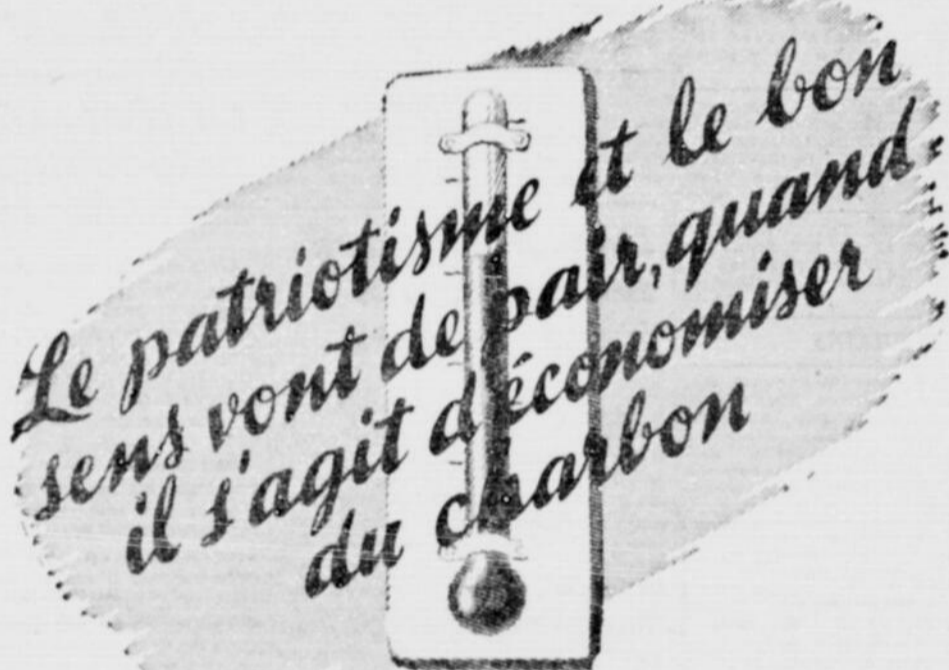 Le patriotisme et le bon
sens vont de pair, quand
il s'agit d'économiser
du charbon